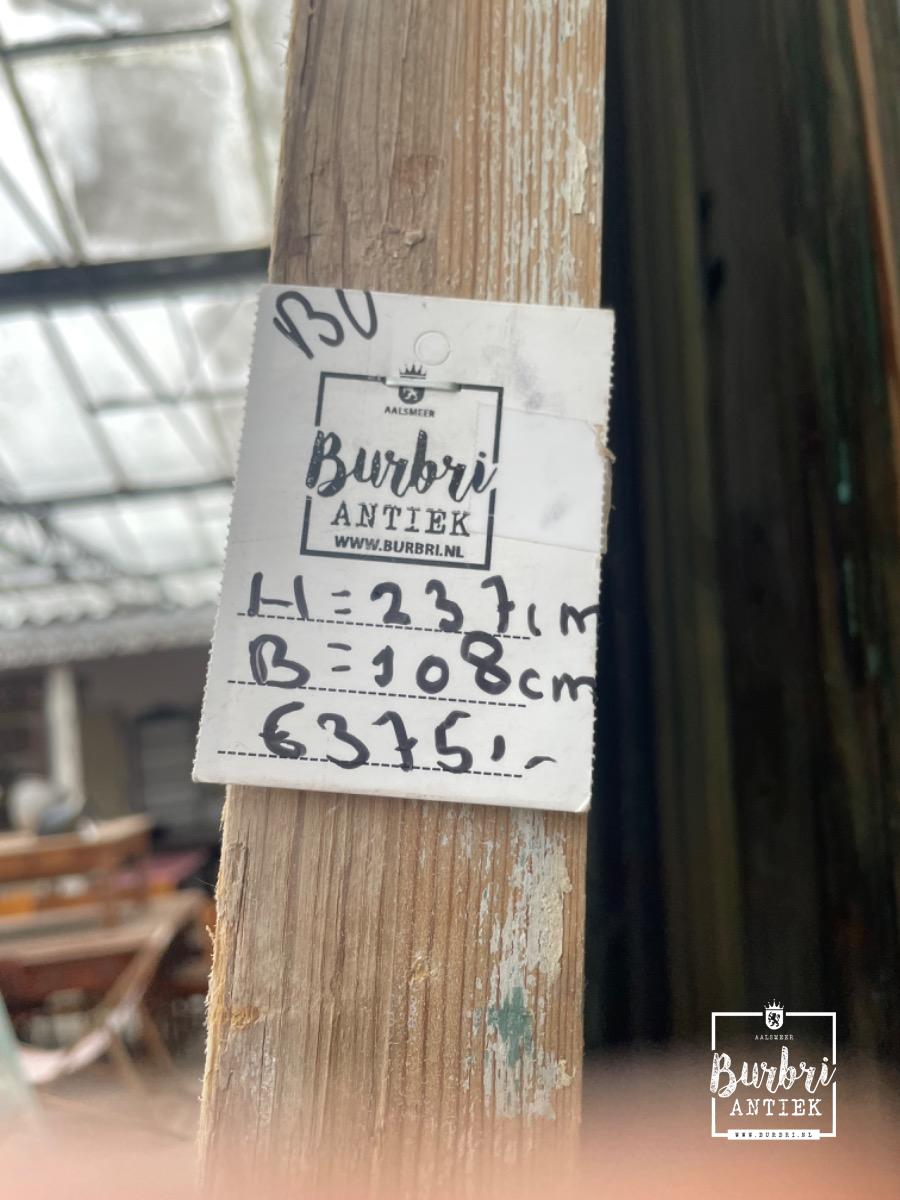 BU
AALSMEER
Burbri
ANTIEK
WWW.BURBRI.NL
H = 237cm
B = 108cm
€375,-
AALSMEER
Burbri
ANTIEK
WWW.BURBRI.NL